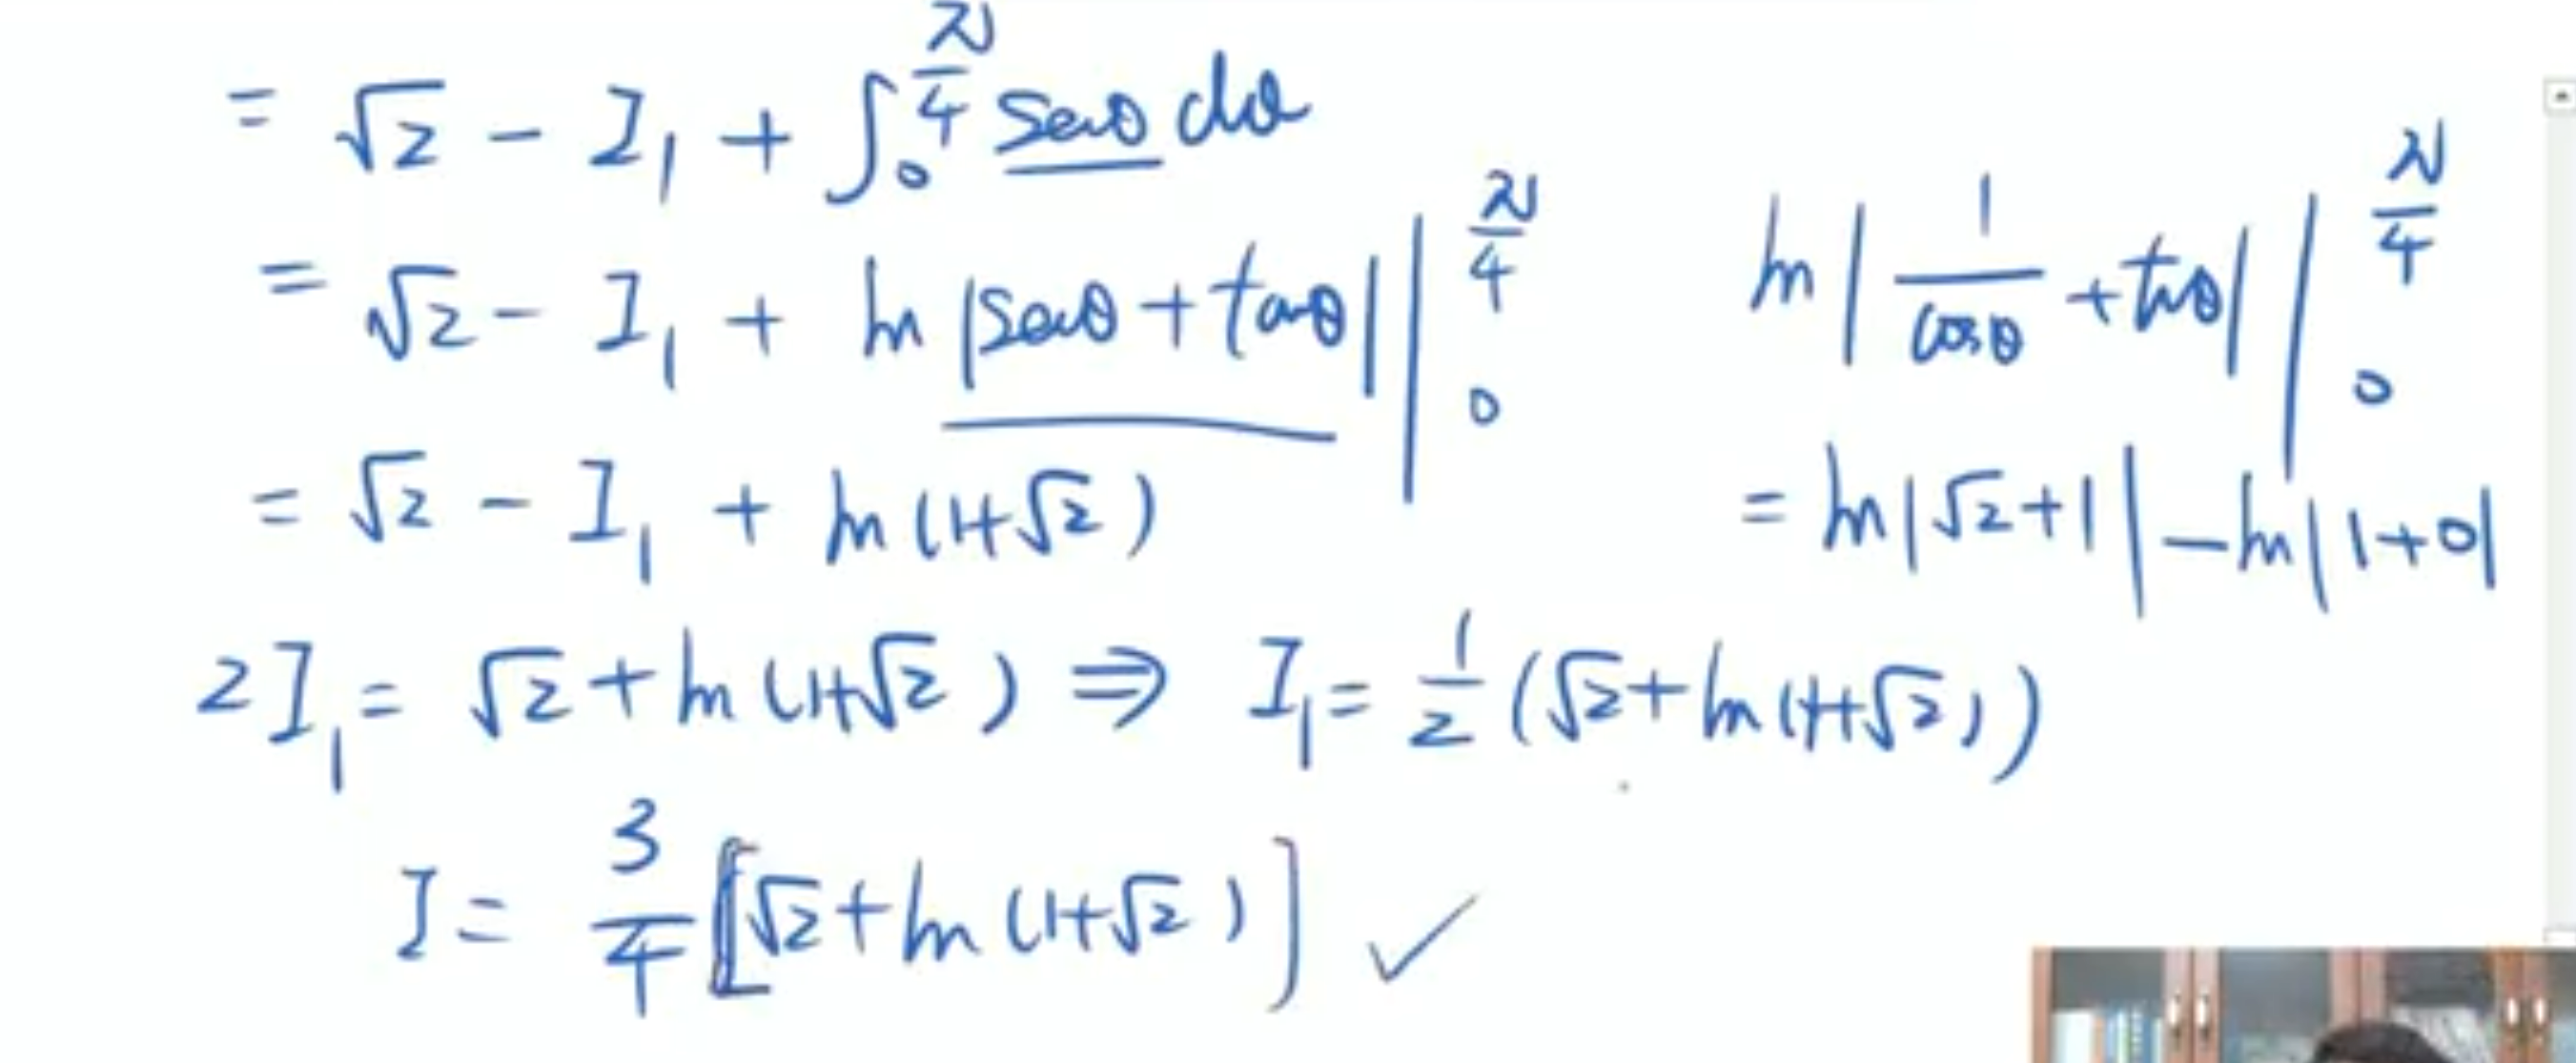 = √2 - I₁ + ∫₀^{π/4} secθ dθ
= √2 - I₁ + ln|secθ + tanθ| |₀^{π/4}
= √2 - I₁ + ln(1+√2)
ln|1/cosθ + tanθ| |₀^{π/4}
= ln|√2+1| - ln|1+0|
2I₁ = √2 + ln(1+√2) ⇒ I₁ = 1/2 (√2 + ln(1+√2))
I = 3/4 [√2 + ln(1+√2)] ✓